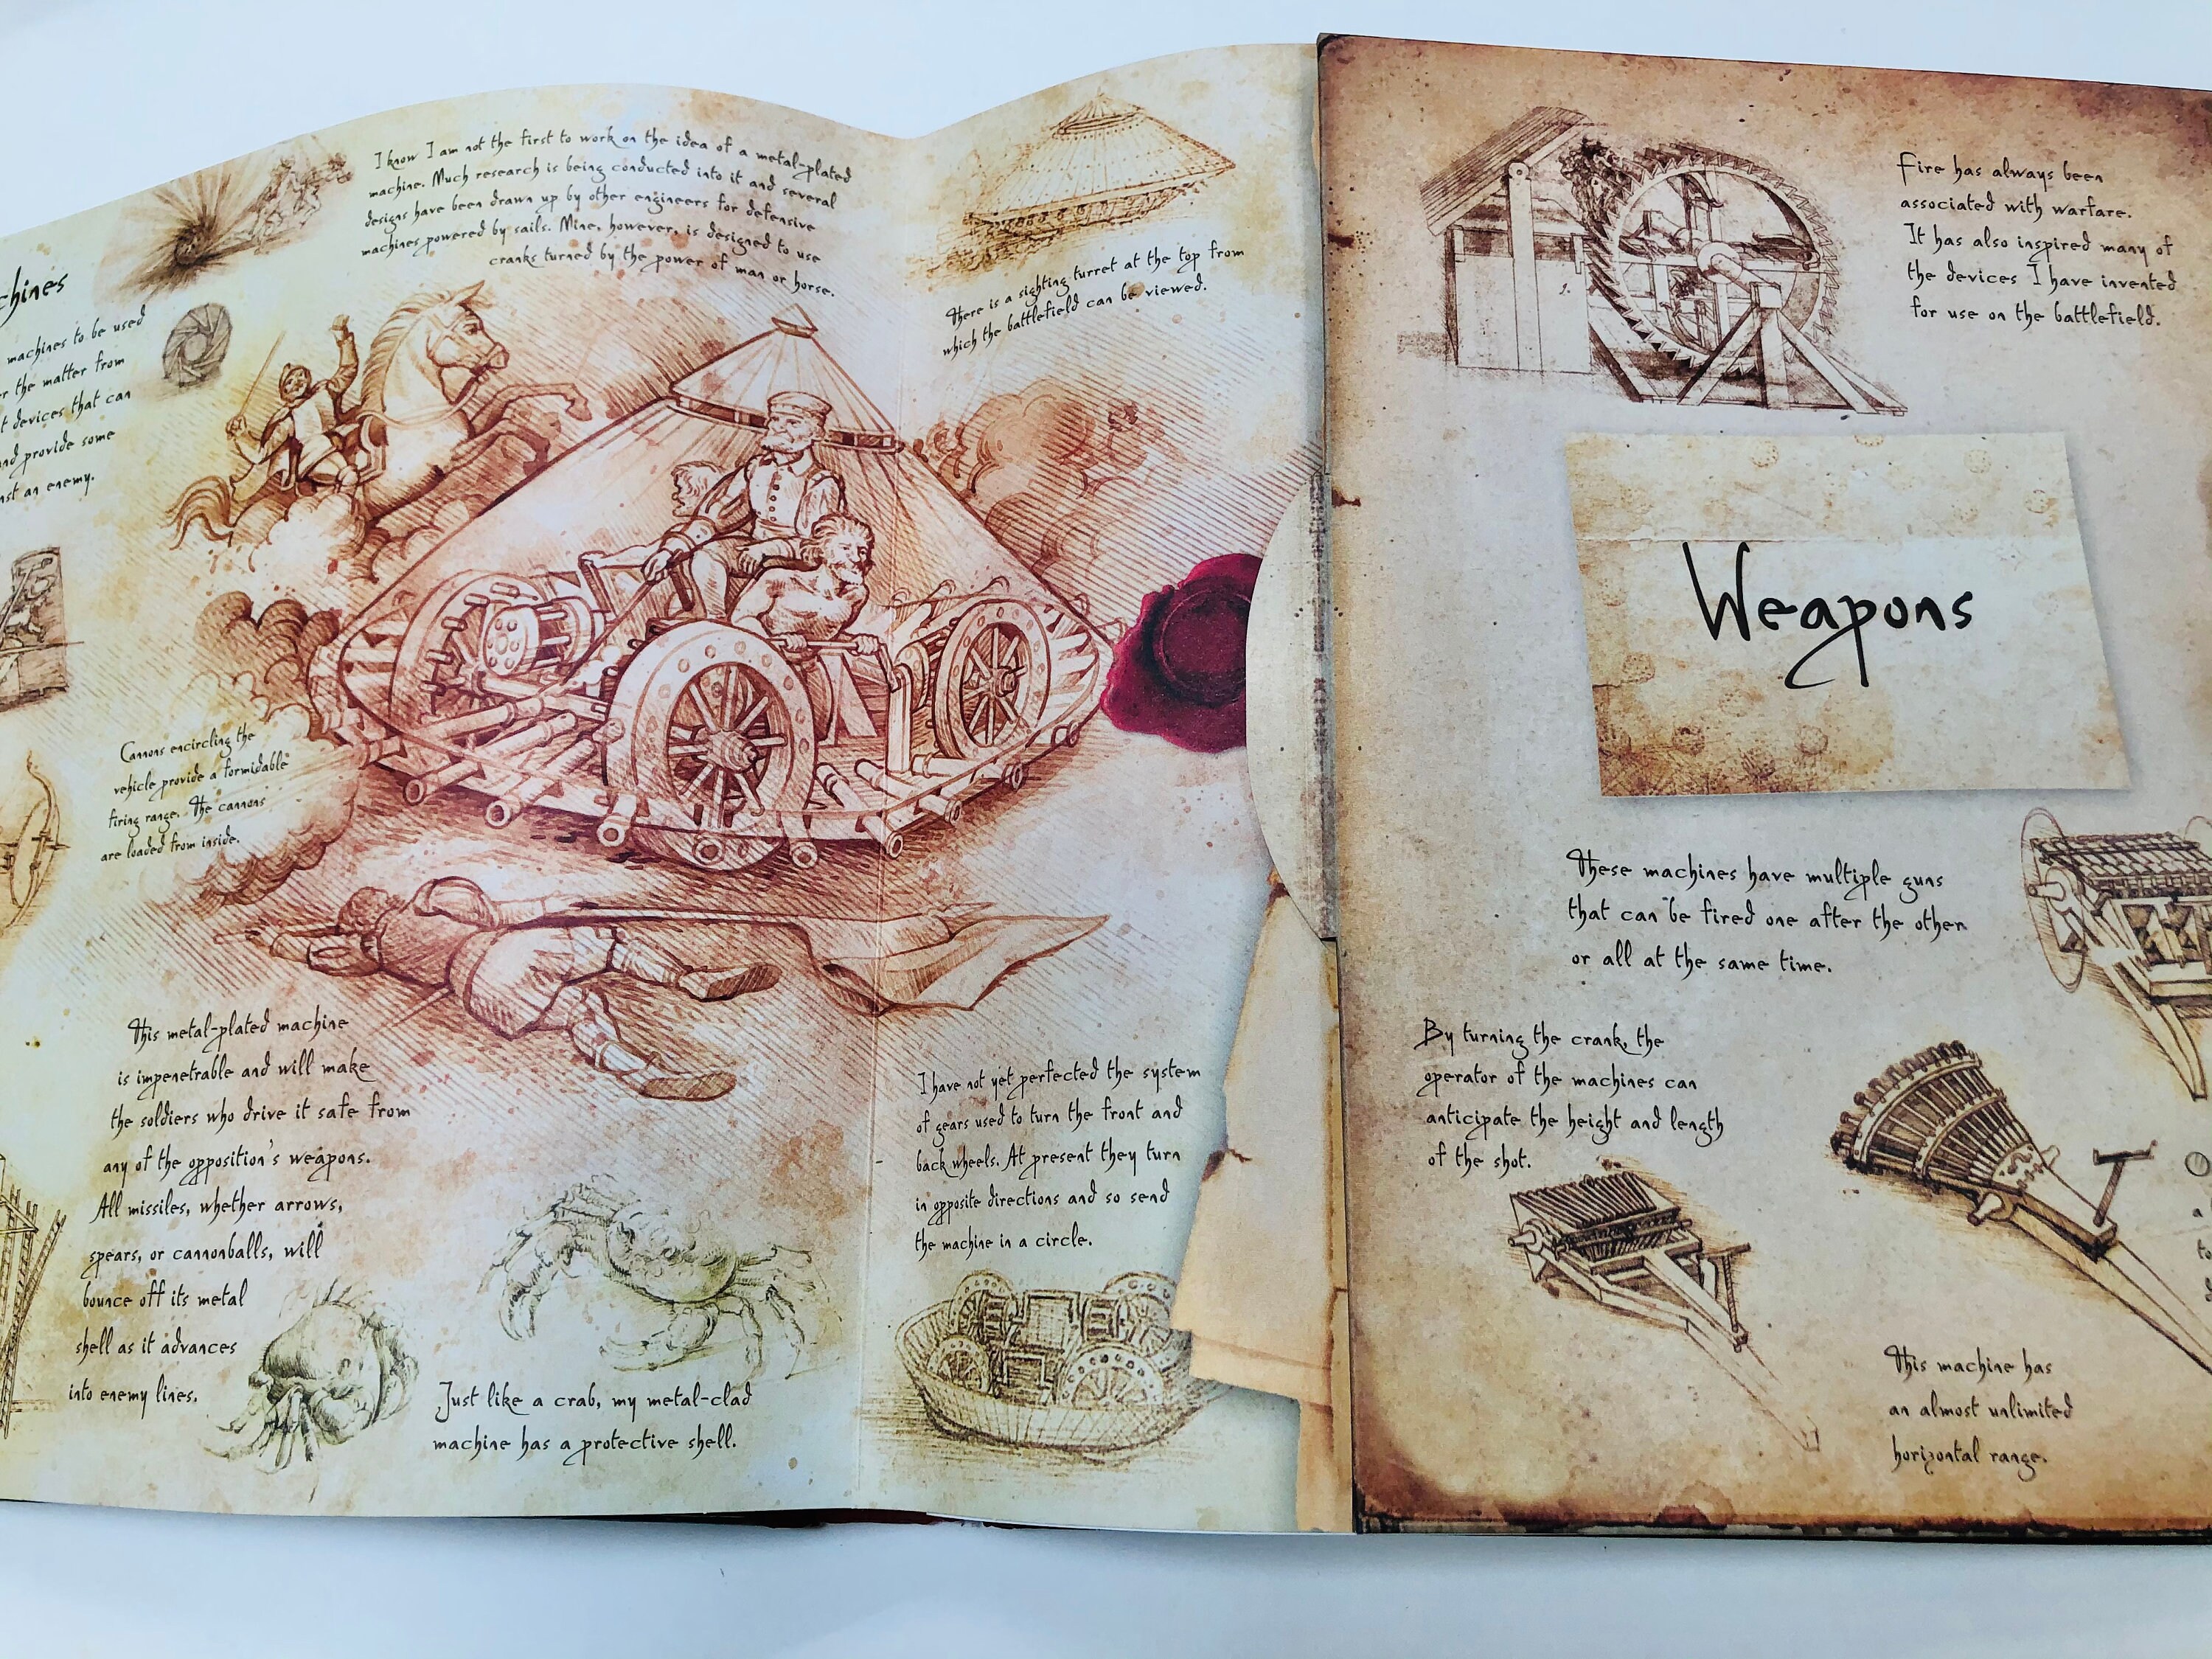 chines
machines to be used
the matter from
devices that can
and provide some
an enemy.
I know I am not the first to work on the idea of a metal-plated
machine. Much research is being conducted into it and several
designs have been drawn up by other engineers for defensive
machines powered by sails. Mine, however, is designed to use
cranks turned by the power of man or horse.
There is a sighting turret at the top from
which the battlefield can be viewed.
Cannons encircling the
vehicle provide a formidable
firing range. The cannons
are loaded from inside.
This metal-plated machine
is impenetrable and will make
the soldiers who drive it safe from
any of the opposition's weapons.
All missiles, whether arrows,
spears, or cannonballs, will
bounce off its metal
shell as it advances
into enemy lines.
Just like a crab, my metal-clad
machine has a protective shell.
I have not yet perfected the system
of gears used to turn the front and
back wheels. At present they turn
in opposite directions and so send
the machine in a circle.
Fire has always been
associated with warfare.
It has also inspired many of
the devices I have invented
for use on the battlefield.
Weapons
These machines have multiple guns
that can be fired one after the other
or all at the same time.
By turning the crank, the
operator of the machines can
anticipate the height and length
of the shot.
This machine has
an almost unlimited
horizontal range.